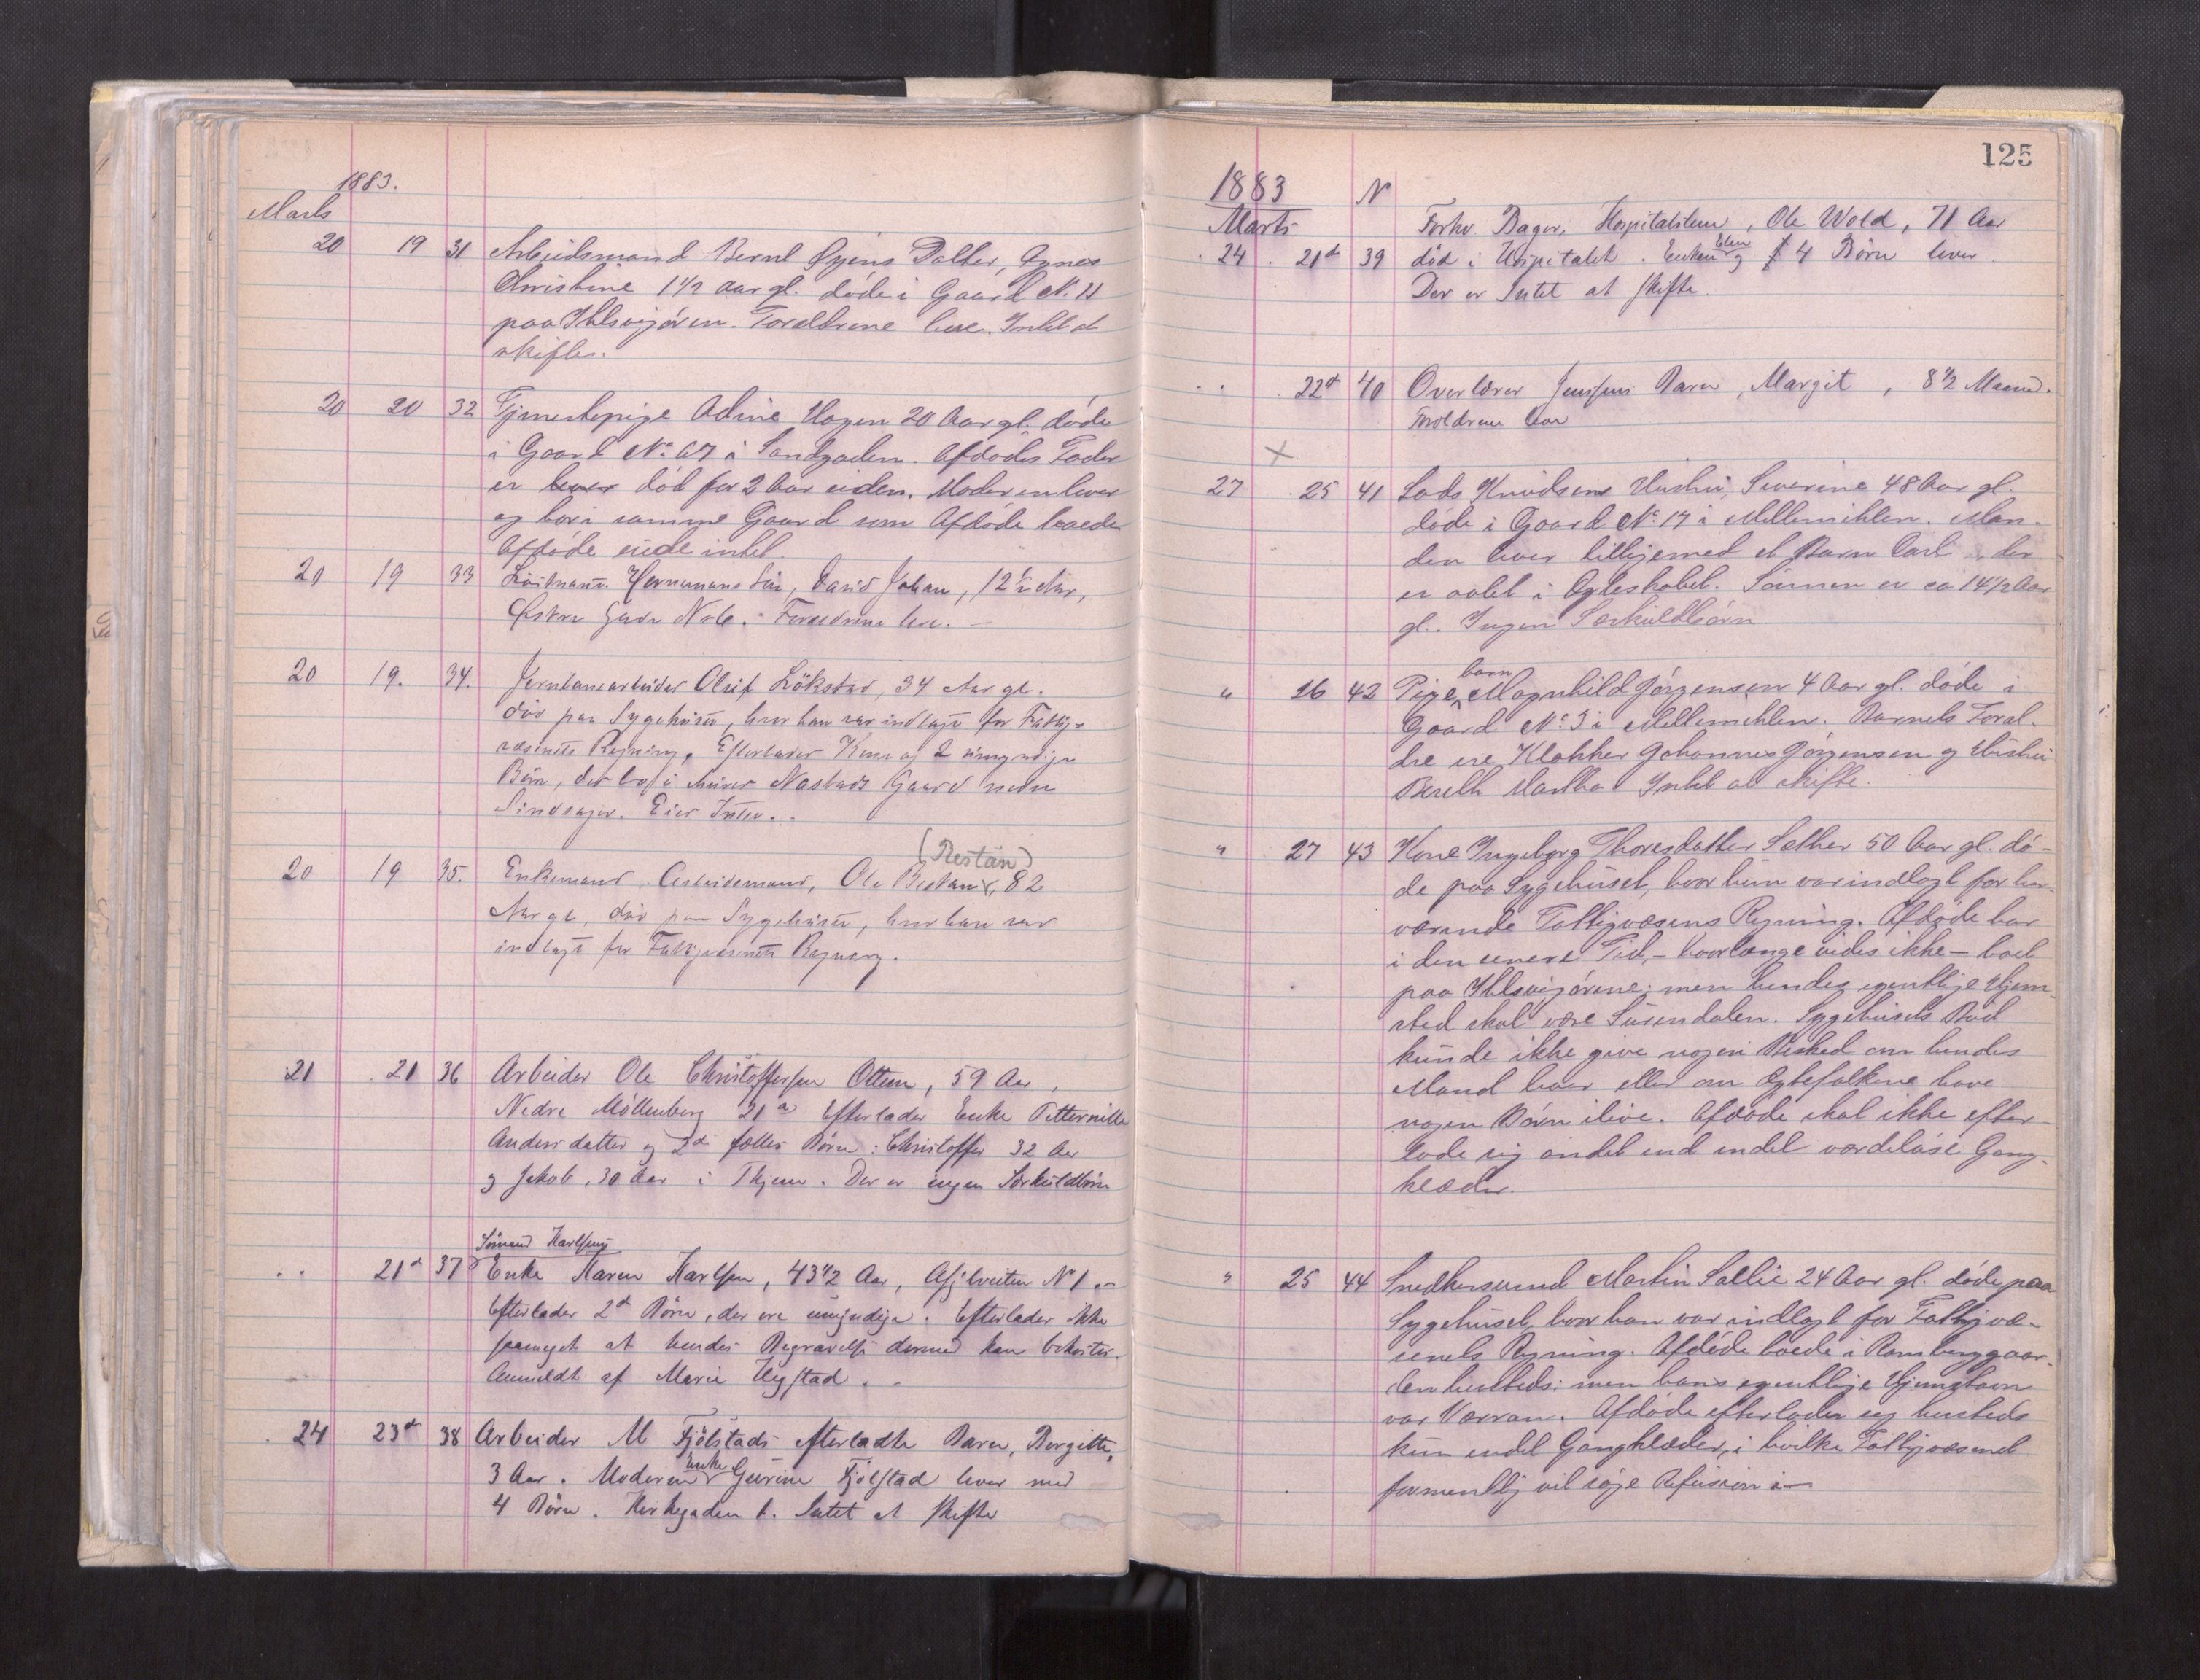 1883.
Marts
20 19 31 Arbeidsmand Bernt Øyens Datter, Agnes
Christine 1 1/2 Aar gl. døde i Gaard N. 11
paa Ihlsvigøren. Forældrene leve. Intet at
skifte.
20 20 32 Tjenestepige Adine Hagen 20 Aar gl. døde
i Gaard No 67 i Sandgaden. Afdødes Fader
er lever død for 2 Aar siden. Moderen lever
og bor i samme Gaard som Afdøde boede
Afdøde eiede intet.
20 19 33 Løitnant Herrmanns Søn, David Johan, 12 1/2 Aar,
Østre Gade No 6. Forældrene leve. —
20 19. 34. Jernbanearbeider Oluf Lökstad, 34 Aar gl.
død paa Sygehuset, hvor han var indlagt for Fattig-
væsenets Regning. Efterlader Kone og 2 umyndige
Børn, der bo i Murer Nastads Gaard nedre
Singsager. Eier Intet.
(Restan)
20 19 35. Enkemand, Arbeidsmand, Ole Bestan, 82
Aar gl, død paa Sygehuset, hvor han var
indlagt for Fattigvæsenets Regning.
21 21 36 Arbeider Ole Christoffersen Ottem, 59 Aar,
Nedre Möllenberg 21 a Efterlader Enke Petternille
Andersdatter og 2de fælles Børn: Christoffer 32 Aar
og Jakob, 30 Aar i Thjem. Der er ingen Særkuldbørn
Sömand Karlsens
" 21d 37 Enke Karen Karlsen, 43 1/2 Aar, Afjlveiten N 1. —
Efterlader 2d Børn, der ere umyndige. Efterlader ikke
saameget at hendes Begravelse dermed kan bekostes.
Anmeldt af Marie Hegstad.
24 23d 38 Arbeider M Fjölstads efterladte Barn, Bergitte,
3 Aar. Moderen Enke Gurine Fjölstad lever med
4 Børn. Kirkegaden 6. Intet at skifte
125
1883 N
Marts Forhv. Bager, Hospitalslem, Ole Wold, 71 Aar
24 21d 39 død i Hospitalet. Enken Elen og 4 Børn lever.
Der er Intet at skifte.
" 22d 40 Overlærer Jenssens Barn, Margit, 8 1/2 Maaned.
Forældrene leve
X
27 25 41 Lods Knudsens Hustru, Severine 48 Aar gl.
døde i Gaard No 17 i Mellemihlen. Man-
den lever tilligemed et Barn Carl, der
er avlet i Ægteskabet. Sønnen er ca 14 1/2 Aar
gl. Ingen Særkuldbørn.
barn
" 26 42 Pige Magnhild Jörgensen 4 Aar gl. døde i
Gaard No 3 i Mellemihlen. Barnets Foræl-
dre ere Klokker Johannes Jörgensen og Hustru
Bereth Martha. Intet at skifte.
" 27 43 Kone Ingeborg Thoresdatter Sæther 50 Aar gl. dø-
de paa Sygehuset, hvor hun var indlagt for her-
værende Fattigvæsens Regning. Afdøde har
i den senere Tid, — hvorlænge vides ikke — boet
paa Ihlsvigørene; men hendes egentlige Hjem-
sted skal være Surendalen. Sygehusets Bud
kunde ikke give nogen Besked om hendes
Mand lever eller om Ægtefolkene have
nogen Børn ilive. Afdøde skal ikke efter-
lade sig andet end endel værdeløse Gang-
klæder.
" 25 44 Snedkersvend Martin Sællie 24 Aar gl. døde paa
Sygehuset, hvor han var indlagt for Fattigvæ-
senets Regning. Afdøde boede i Ramberggaar-
den hersteds; men hans egentlige Hjemstavn
var Værran. Afdøde efterlader sig hersteds
kun endel Gangklæder, i hvilke Fattigvæsenet
formentlig vil søge Refusion i —